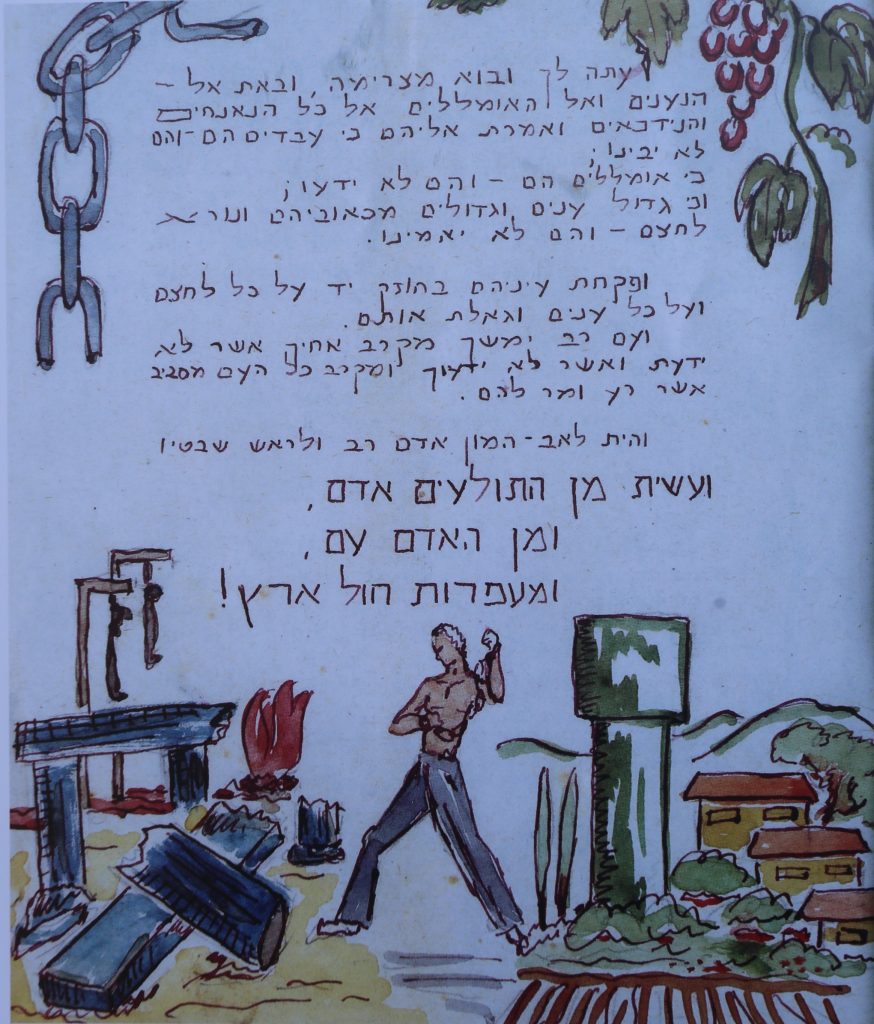 ועתה לך ובוא מצרימה, ובאת אל –
הנענים ואל האומללים אל כל הנאנחים
והנידכאים ואמרת אליהם כי עבדים הם – והם
לא יבינו;
כי אומללים הם – והם לא ידעו;
וכי גדול ענים וגדולים מכאוביהם ונורא
לחצם – והם לא יאמינו.
ופקחת עיניהם בחוזק יד על כל לחצם
ועל כל ענים וגאלת אותם.
ועם רב ימשך מקרב אחיך אשר לא
ידעת ואשר לא ידעוך ומקרב כל העם מסביב
אשר רע ומר להם.
והית לאב-המון אדם רב ולראש שבטיו
ועשית מן התולעים אדם,
ומן האדם עם,
ומעפרות חול ארץ!